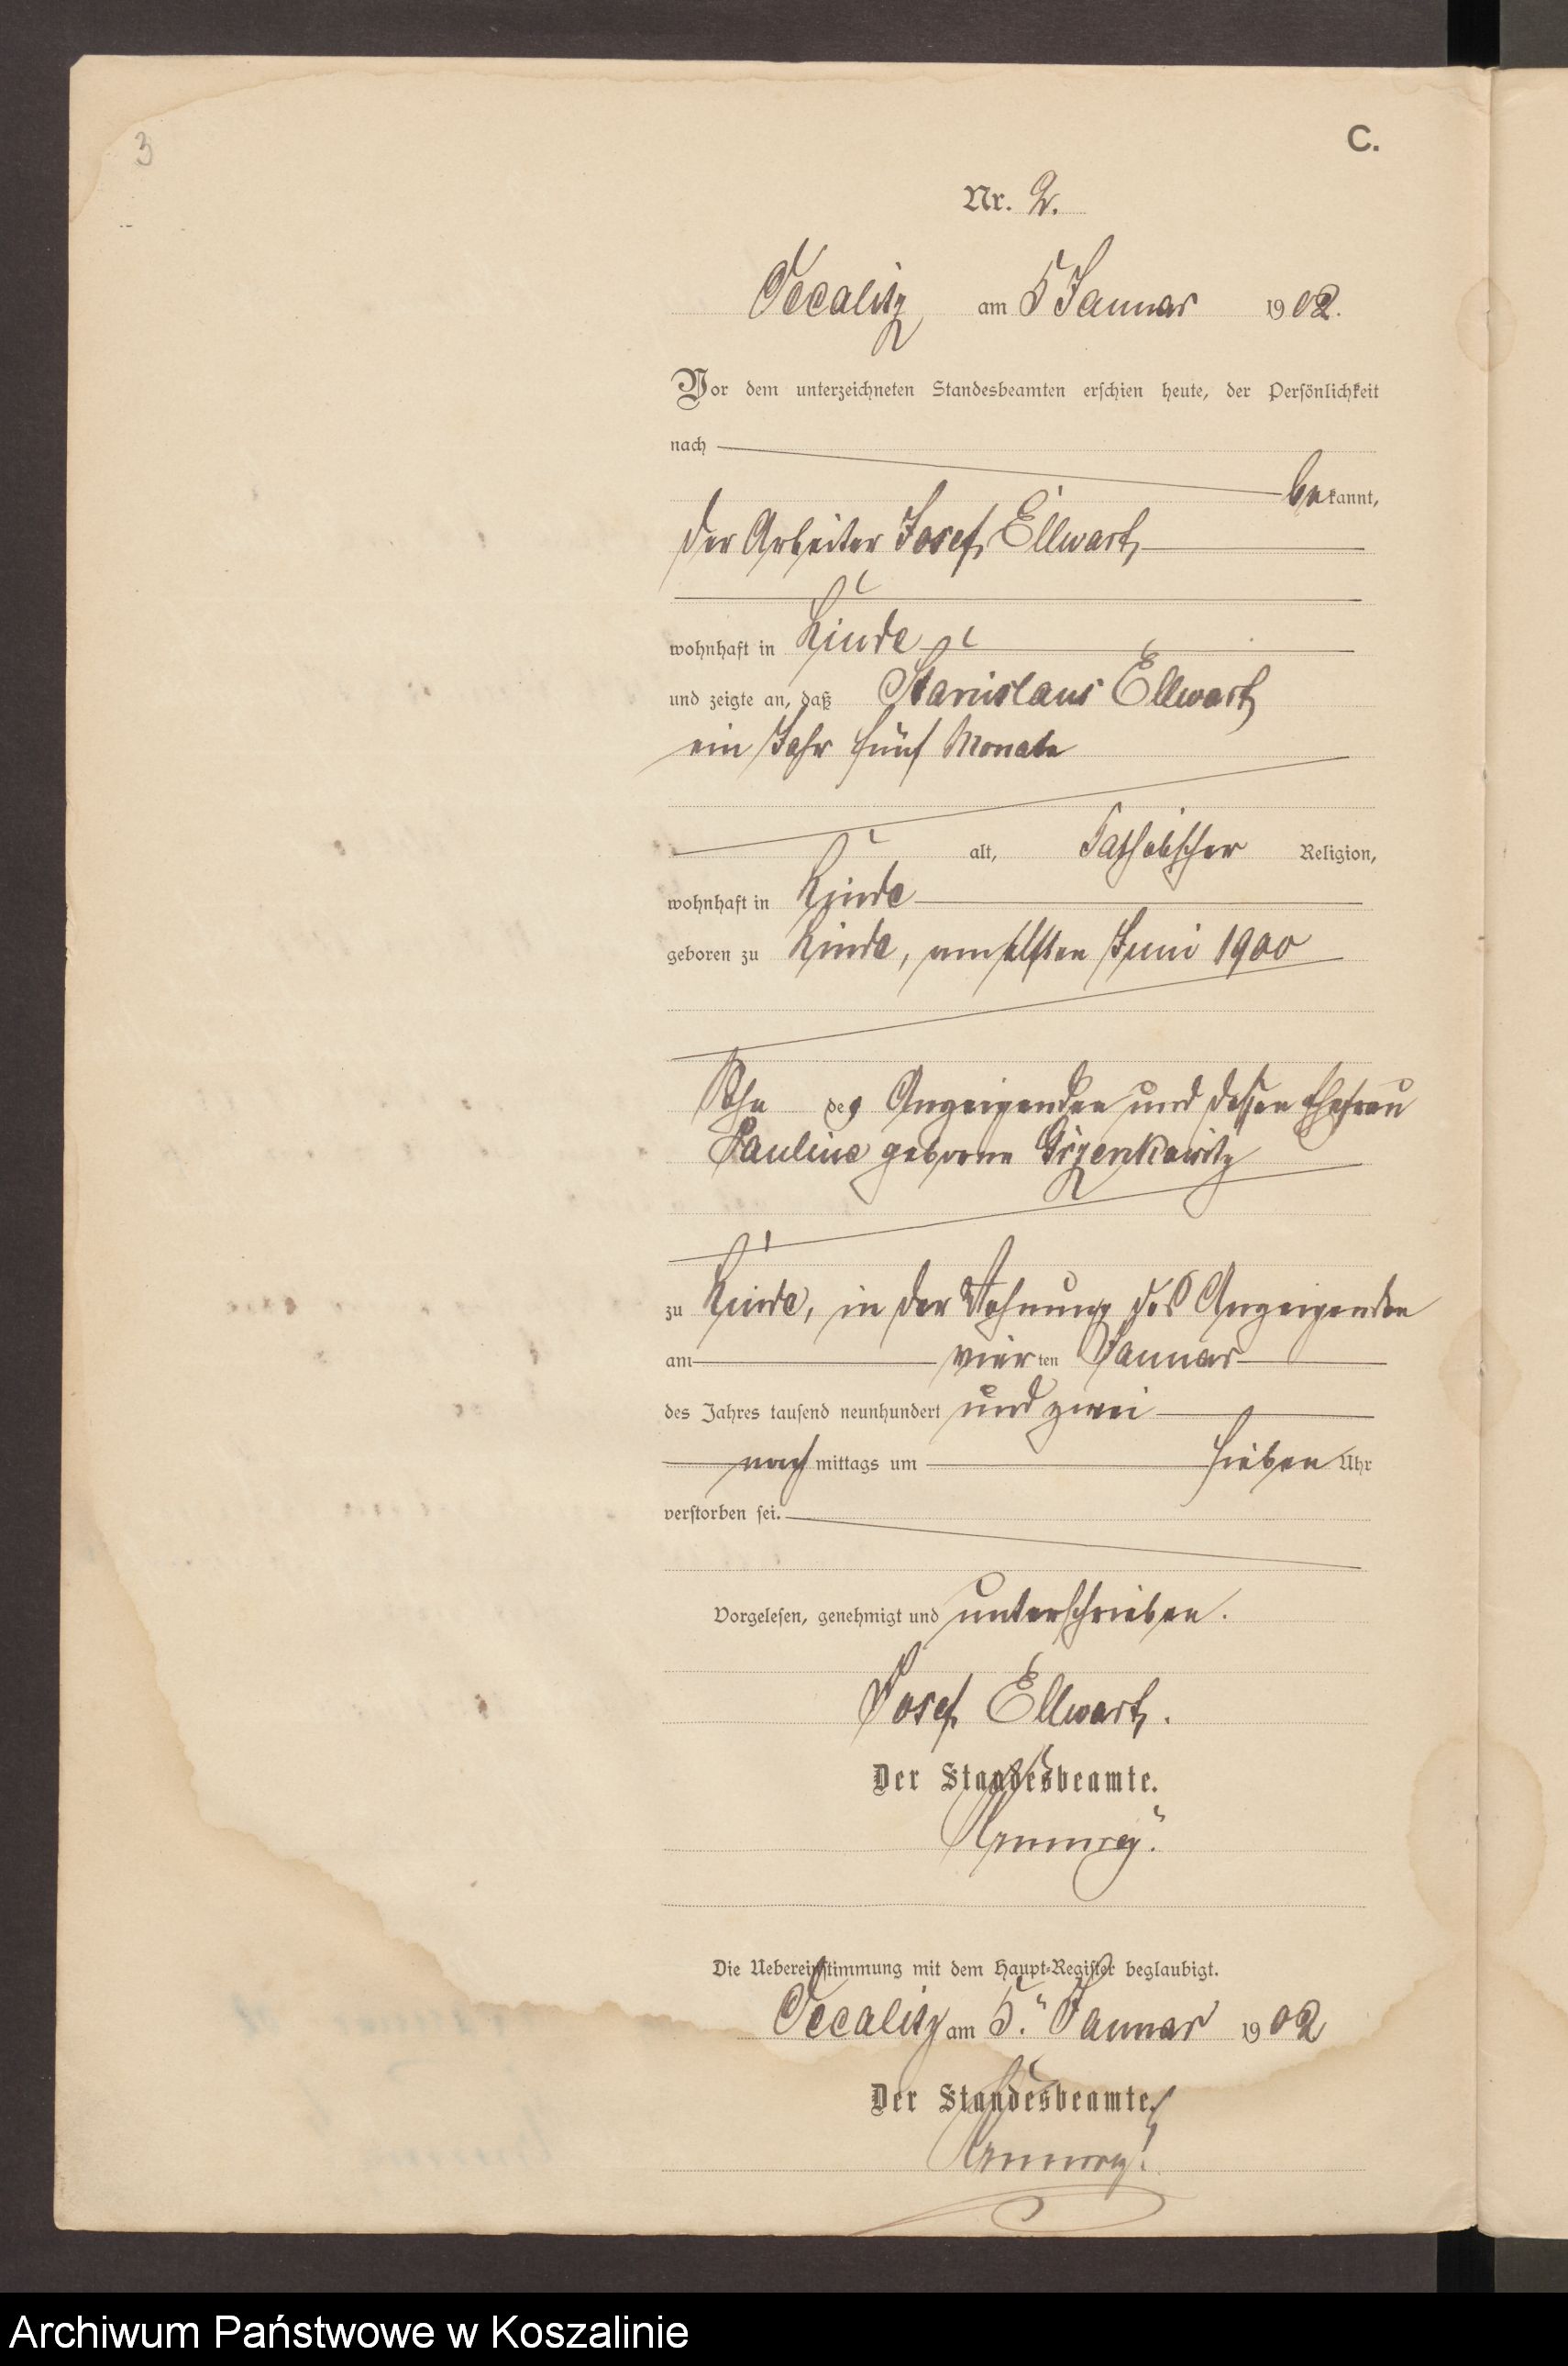 3
C.
Nr. 2.
Occalitz am 5 Januar 1902.
Vor dem unterzeichneten Standesbeamten erschien heute, der Persönlichkeit
nach
bekannt,
der Arbeiter Josef Ellwart
wohnhaft in Linde
und zeigte an, daß Stanislaus Ellwart
ein Jahr fünf Monate
alt, katholischer Religion,
wohnhaft in Linde
geboren zu Linde, am elften Juni 1900
Sohn des Anzeigenden und dessen Ehefrau
Pauline geborne
zu Linde, in der Wohnung des Anzeigenden
am vierten Januar
des Jahres tausend neunhundert und zwei
nachmittags um sieben Uhr
verstorben sei.
Vorgelesen, genehmigt und unterschrieben.
Josef Ellwart.
Der Standesbeamte.
Die Uebereinstimmung mit dem Haupt-Register beglaubigt.
Occalitz am 5. Januar 1902
Der Standesbeamte.
Archiwum Państwowe w Koszalinie